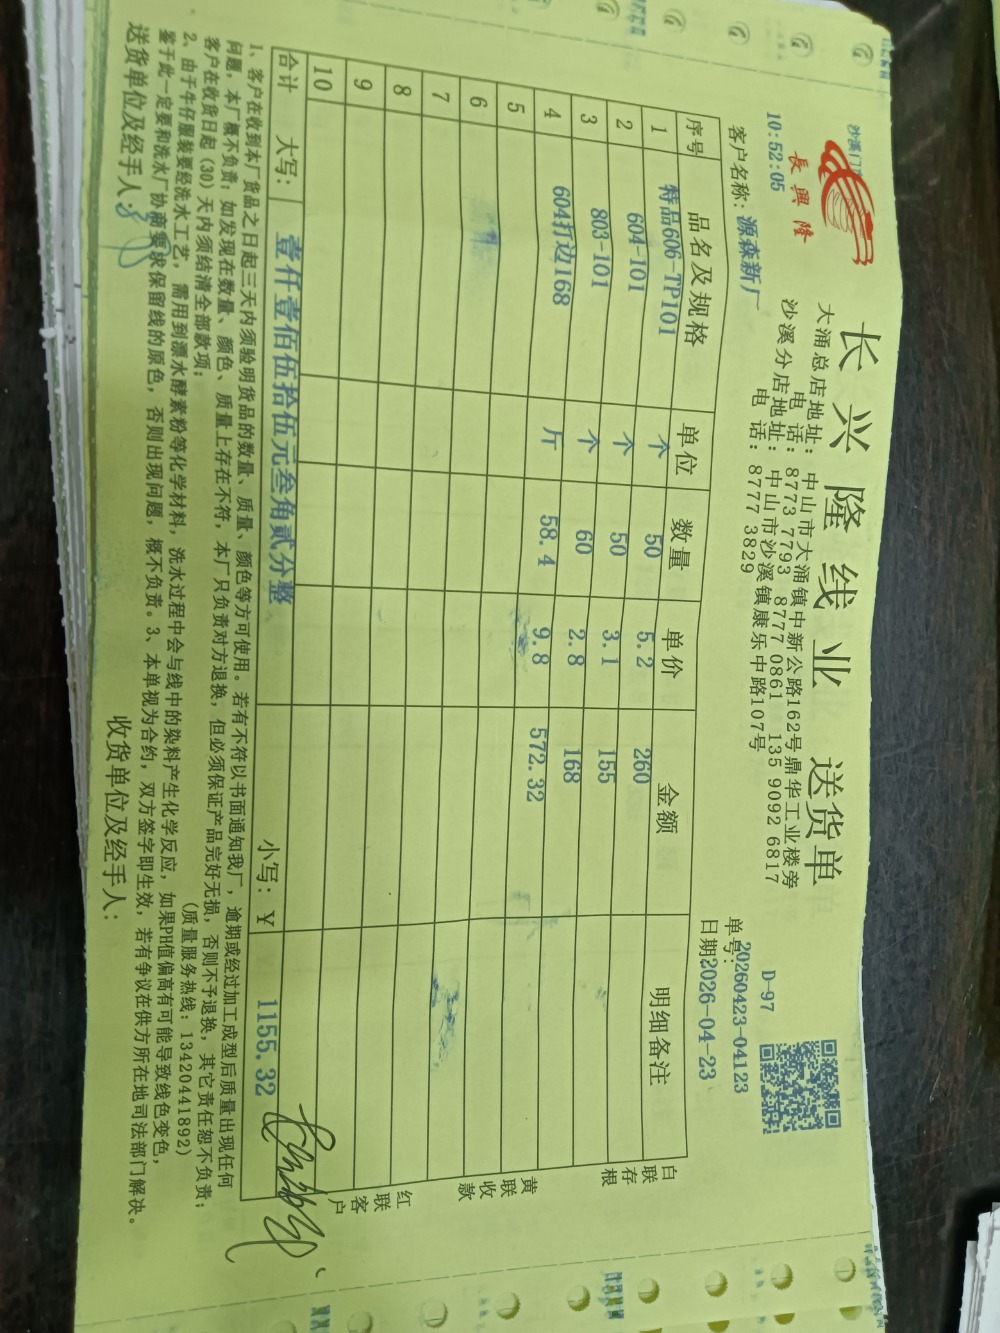 長興隆
沙溪门
10:52:05
长兴隆线业 送货单
大涌总店地址: 中山市大涌镇中新公路162号鼎华工业楼旁
电 话: 8773 7793 8777 0861 135 9092 6817
沙溪分店地址: 中山市沙溪镇康乐中路107号
电 话: 8777 3829
D-97
单号: 20260423-04123
客户名称: 源森新厂
日期 2026-04-23
序号 品名及规格 单位 数量 单价 金额 明细备注
1 特品606-TP101 个 50 5.2 260
2 604-101 个 50 3.1 155
3 803-101 个 60 2.8 168
4 604打边168 斤 58.4 9.8 572.32
5
6
7
8
9
10
合计 大写: 壹仟壹佰伍拾伍元叁角贰分整 小写: ¥ 1155.32
白联存根
黄联收款
红联客户
1、客户在收到本厂货品之日起三天内须验明货品的数量、质量、颜色等方可使用。若有不符以书面通知我厂，逾期或经过加工成型后质量出现任何
问题，本厂概不负责；如发现在数量、颜色、质量上存在不符，本厂只负责对方退换，但必须保证产品完好无损，否则不予退换，其它责任恕不负责；
客户在收货日起(30)天内须结清全部款项； (质量服务热线: 13420441892)
2、由于牛仔服装要经洗水工艺，需用到漂水酵素粉等化学材料，洗水过程中会与线中的染料产生化学反应，如果PH值偏高有可能导致线色变色，
鉴于此一定要和洗水厂协商要求保留线的原色，否则出现问题，概不负责。3、本单视为合约，双方签字即生效，若有争议在供方所在地司法部门解决。
送货单位及经手人: 收货单位及经手人: